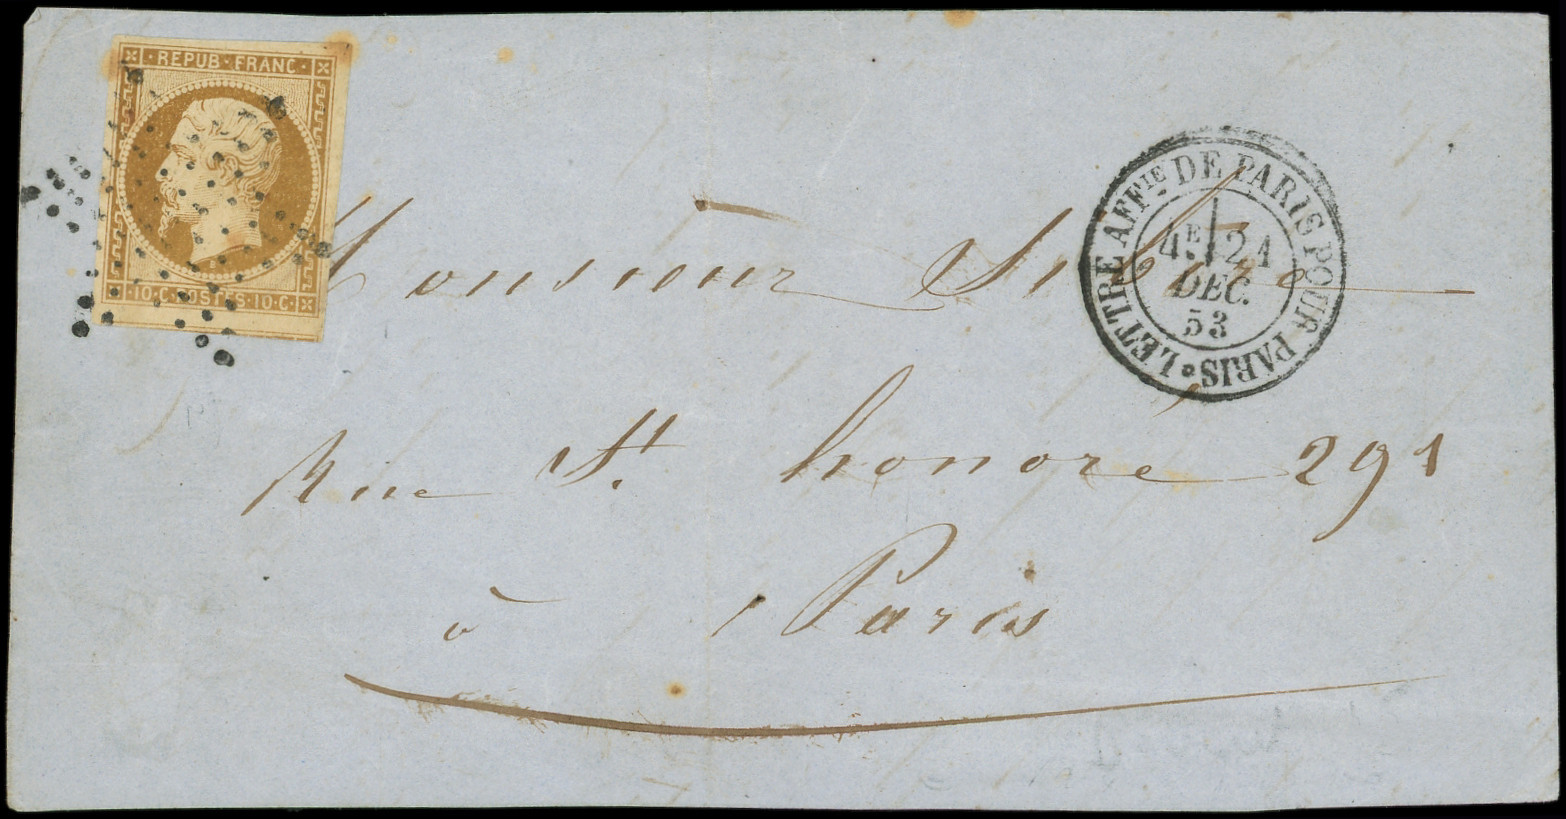 REPUB·FRANC·
10·C·POSTES·10·C·
LETTRE AFFIE DE PARIS POUR PARIS
4E 21
DEC.
53
Monsieur
Rue St. honoré 291
à Paris